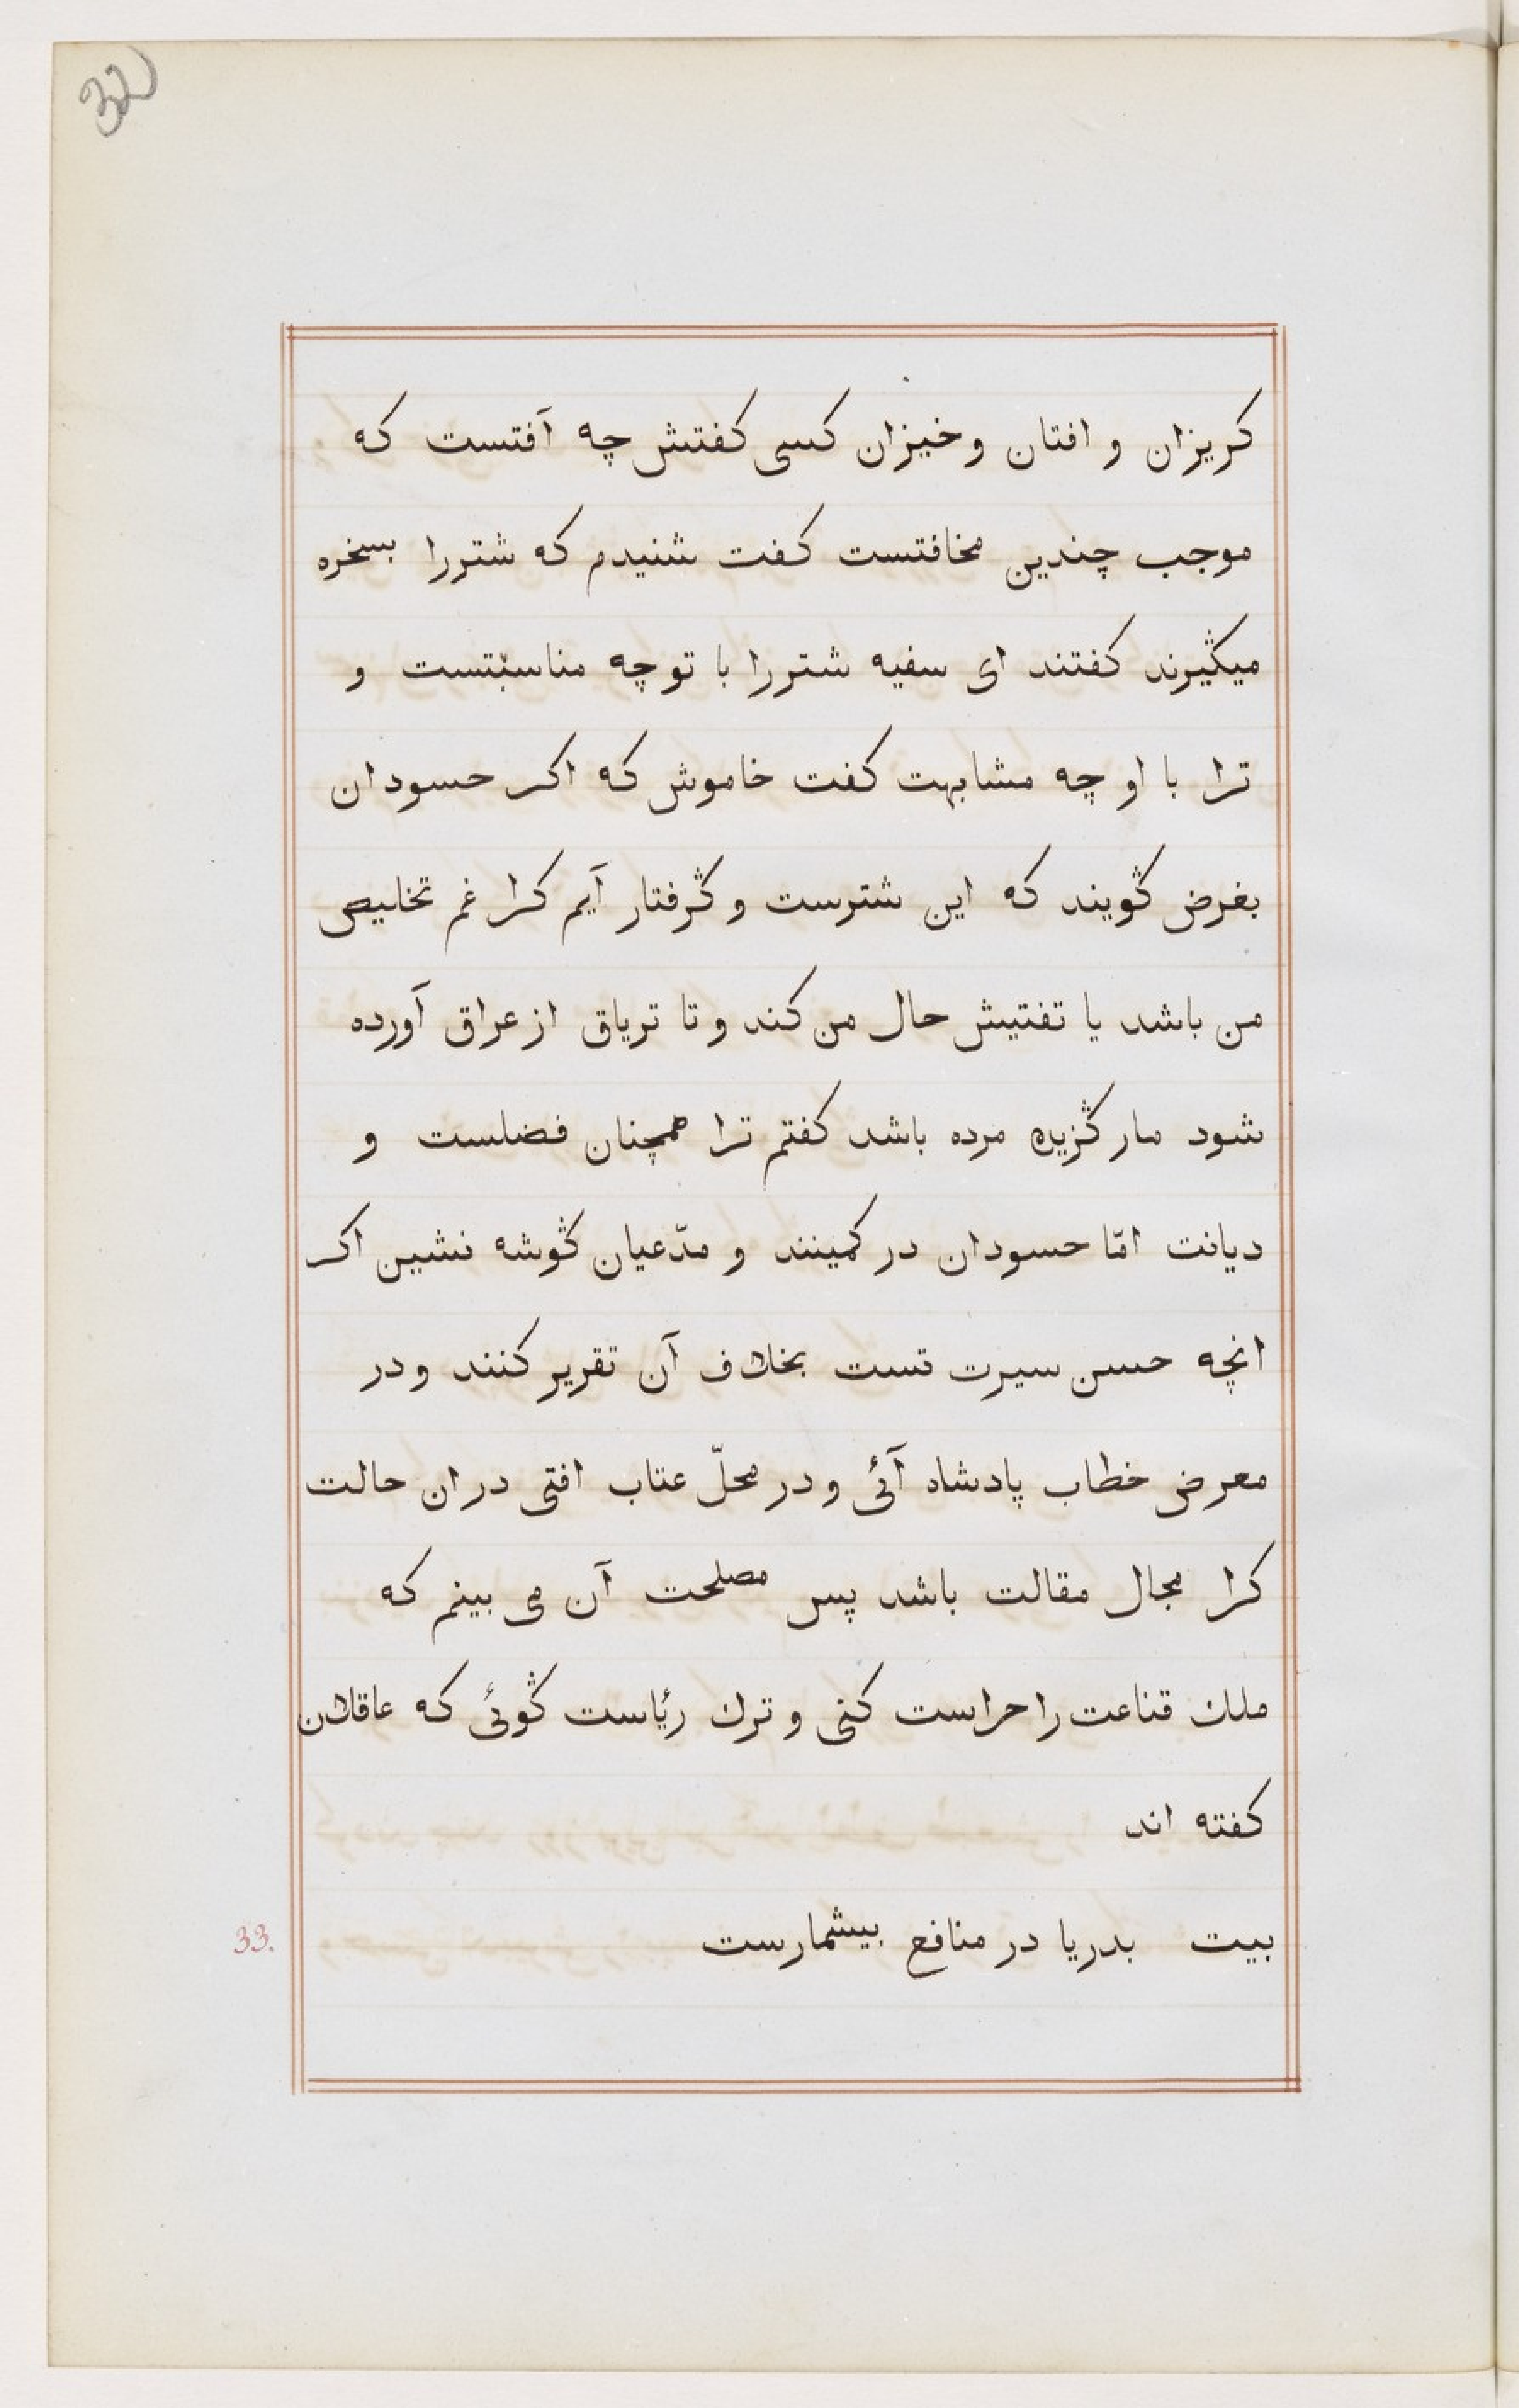 32
کریزان و افتان و خیزان کسی کفتش چه آفتست که
موجب چندین مخافتست کفت شنیدم که شتررا بسخره
میڭیرند کفتند ای سفیه شتررا با تو چه مناسبتست و
ترا با او چه مشابهت کفت خاموش که اکر حسودان
بغرض ڭویند که این شترست و ڭرفتار آیم کرا غم تخلیص
من باشد یا تفتیش حال من کند و تا تریاق از عراق آورده
شود مار ڭزیده مرده باشد کفتم ترا همچنان فضلست و
دیانت امّا حسودان در کمینند و مدّعیان ڭوشه نشین اکر
انچه حسن سیرت تست بخلاف آن تقریر کنند و در
معرض خطاب پادشاه آئی و در محلّ عتاب افتی در ان حالت
کرا مجال مقالت باشد پس مصلحت آن می بینم که
ملك قناعت را حراست کنی و ترك رئاست ڭوئی که عاقلان
کفته اند
بیت بدریا در منافع بیشمارست
33.